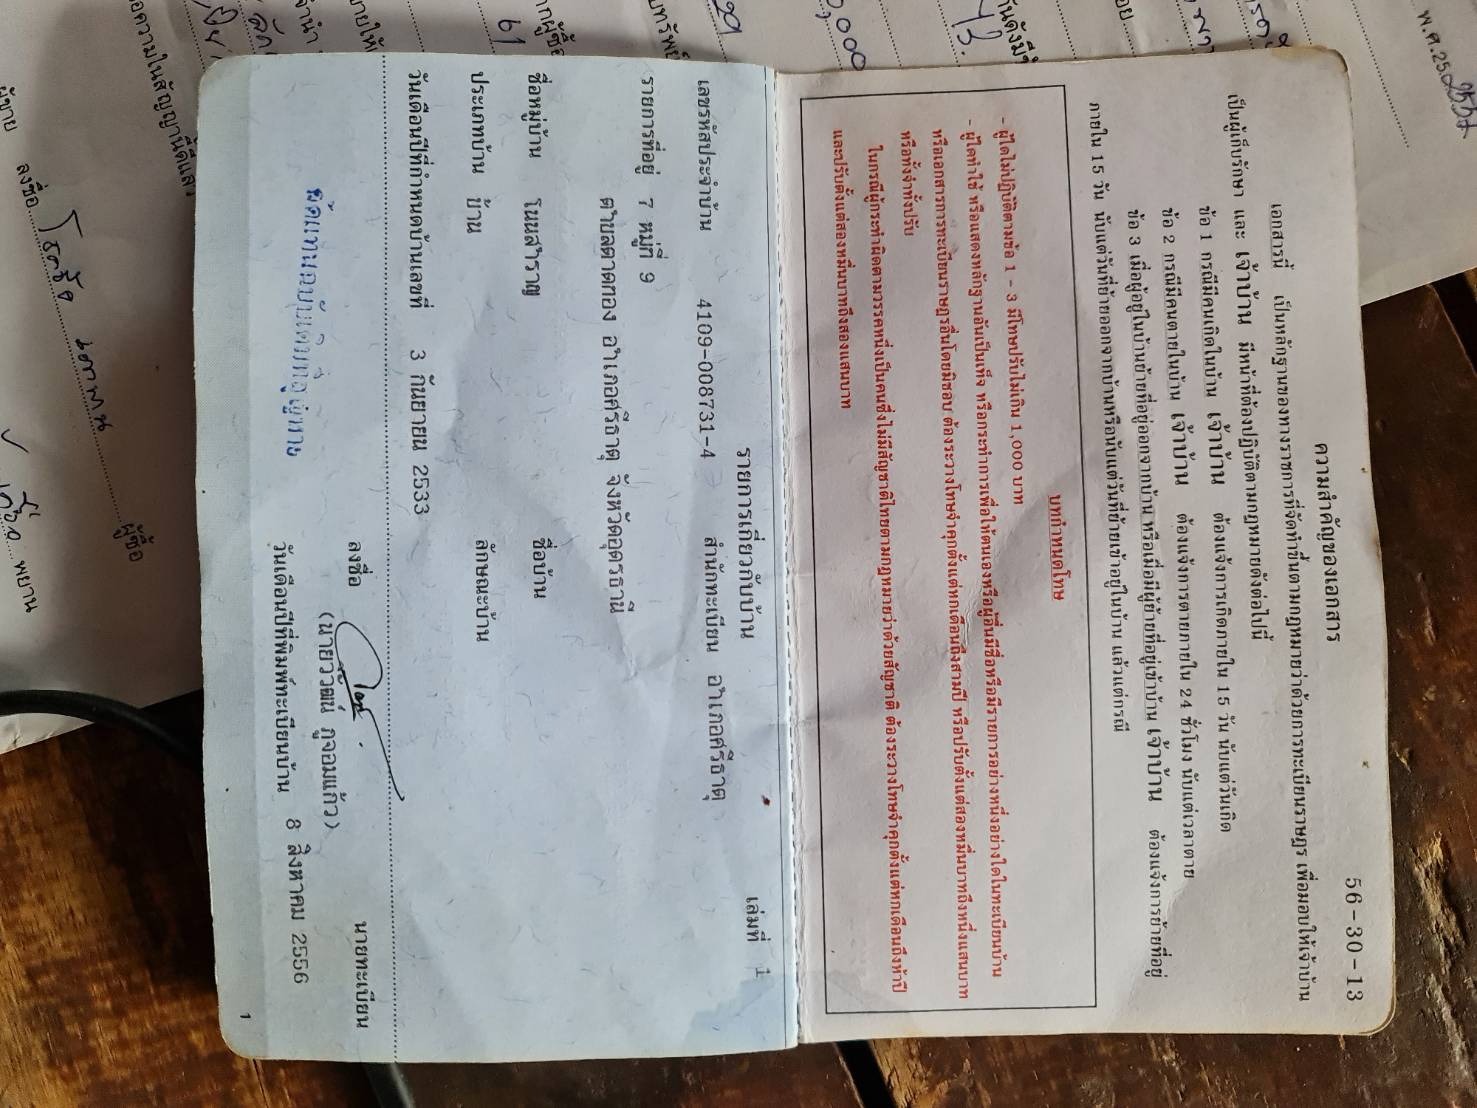 56-30-13
ความสำคัญของเอกสาร
เอกสารนี้ เป็นหลักฐานของทางราชการที่จัดทำขึ้นตามกฎหมายว่าด้วยการทะเบียนราษฎร เพื่อมอบให้เจ้าบ้าน
เป็นผู้เก็บรักษา และ เจ้าบ้าน มีหน้าที่ต้องปฏิบัติตามกฎหมายดังต่อไปนี้
ข้อ 1 กรณีมีคนเกิดในบ้าน เจ้าบ้าน ต้องแจ้งการเกิดภายใน 15 วัน นับแต่วันเกิด
ข้อ 2 กรณีมีคนตายในบ้าน เจ้าบ้าน ต้องแจ้งการตายภายใน 24 ชั่วโมง นับแต่เวลาตาย
ข้อ 3 เมื่อผู้อยู่ในบ้านย้ายที่อยู่ออกจากบ้าน หรือเมื่อมีผู้ย้ายที่อยู่เข้าบ้าน เจ้าบ้าน ต้องแจ้งการย้ายที่อยู่
ภายใน 15 วัน นับแต่วันที่ย้ายออกจากบ้านหรือนับแต่วันที่ย้ายเข้าอยู่ในบ้าน แล้วแต่กรณี
บทกำหนดโทษ
- ผู้ใดไม่ปฏิบัติตามข้อ 1 - 3 มีโทษปรับไม่เกิน 1,000 บาท
- ผู้ใดทำใช้ หรือแสดงหลักฐานอันเป็นเท็จ หรือกระทำการเพื่อให้ตนเองหรือผู้อื่นมีชื่อหรือมีรายการอย่างหนึ่งอย่างใดในทะเบียนบ้าน
หรือเอกสารการทะเบียนราษฎรอื่นโดยมิชอบ ต้องระวางโทษจำคุกตั้งแต่หกเดือนถึงสามปี หรือปรับตั้งแต่สองหมื่นบาทถึงหนึ่งแสนบาท
หรือทั้งจำทั้งปรับ
ในกรณีผู้กระทำผิดตามวรรคหนึ่งเป็นคนซึ่งไม่มีสัญชาติไทยตามกฎหมายว่าด้วยสัญชาติ ต้องระวางโทษจำคุกตั้งแต่หกเดือนถึงห้าปี
และปรับตั้งแต่สองหมื่นบาทถึงสองแสนบาท
เล่มที่ 1
รายการเกี่ยวกับบ้าน
เลขรหัสประจำบ้าน 4109-008731-4 สำนักทะเบียน อำเภอศรีธาตุ
รายการที่อยู่ 7 หมู่ที่ 9
ตำบลตาดทอง อำเภอศรีธาตุ จังหวัดอุดรธานี
ชื่อหมู่บ้าน โนนสำราญ ชื่อบ้าน
ประเภทบ้าน บ้าน ลักษณะบ้าน
วันเดือนปีที่กำหนดบ้านเลขที่ 3 กันยายน 2533
ลงชื่อ นายทะเบียน
(นายวิวัฒน์ ภูจอมแก้ว)
วันเดือนปีที่พิมพ์ทะเบียนบ้าน 8 สิงหาคม 2556
1
พ.ศ.25 2557
,000
61
ผู้ขาย
ลงชื่อ ผู้ซื้อ
พยาน